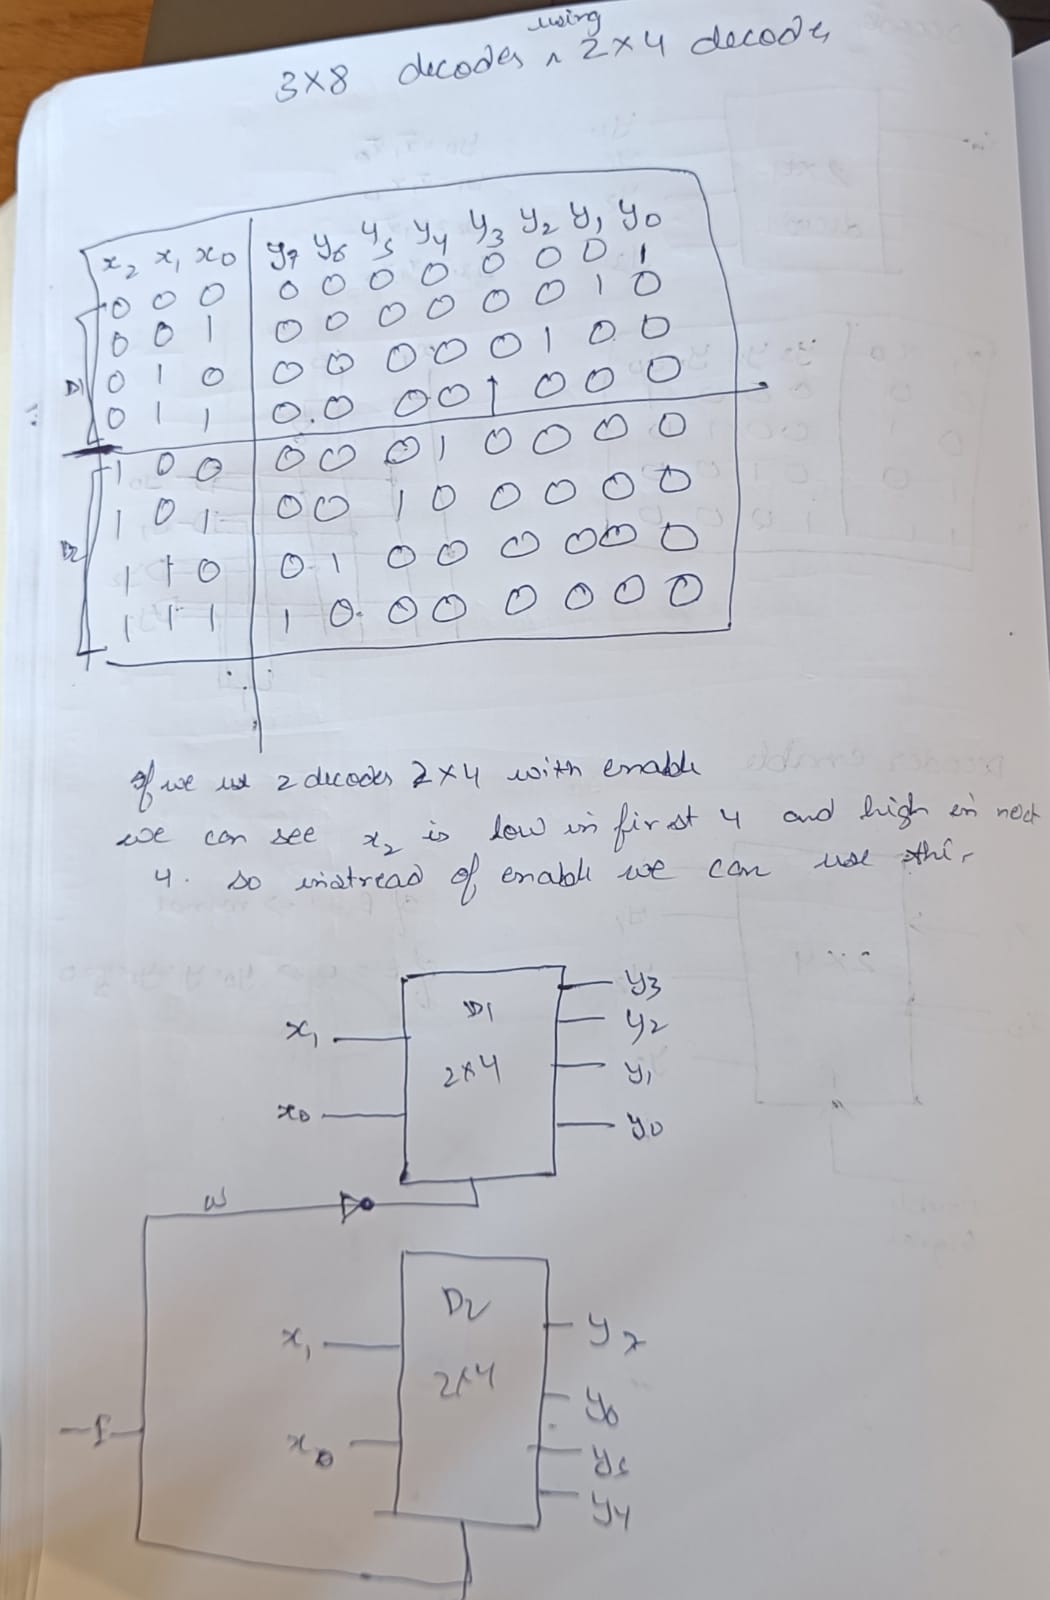 using
3x8 decoder ^ 2x4 decoder
x2 x1 x0 y7 y6 y5 y4 y3 y2 y1 y0
0 0 0 0 0 0 0 0 0 0 1
0 0 1 0 0 0 0 0 0 1 0
0 1 0 0 0 0 0 0 1 0 0
D1
0 1 1 0 0 0 0 1 0 0 0
1 0 0 0 0 0 1 0 0 0 0
1 0 1 0 0 1 0 0 0 0 0
D2
1 1 0 0 1 0 0 0 0 0 0
1 1 1 1 0 0 0 0 0 0 0
If we use 2 decoder 2x4 with enable
we can see x2 is low in first 4 and high in next
4. so instread of enable we can use this
D1
2x4
x1
x0
y3
y2
y1
y0
w
D2
2x4
x1
x0
y7
y6
y5
y4